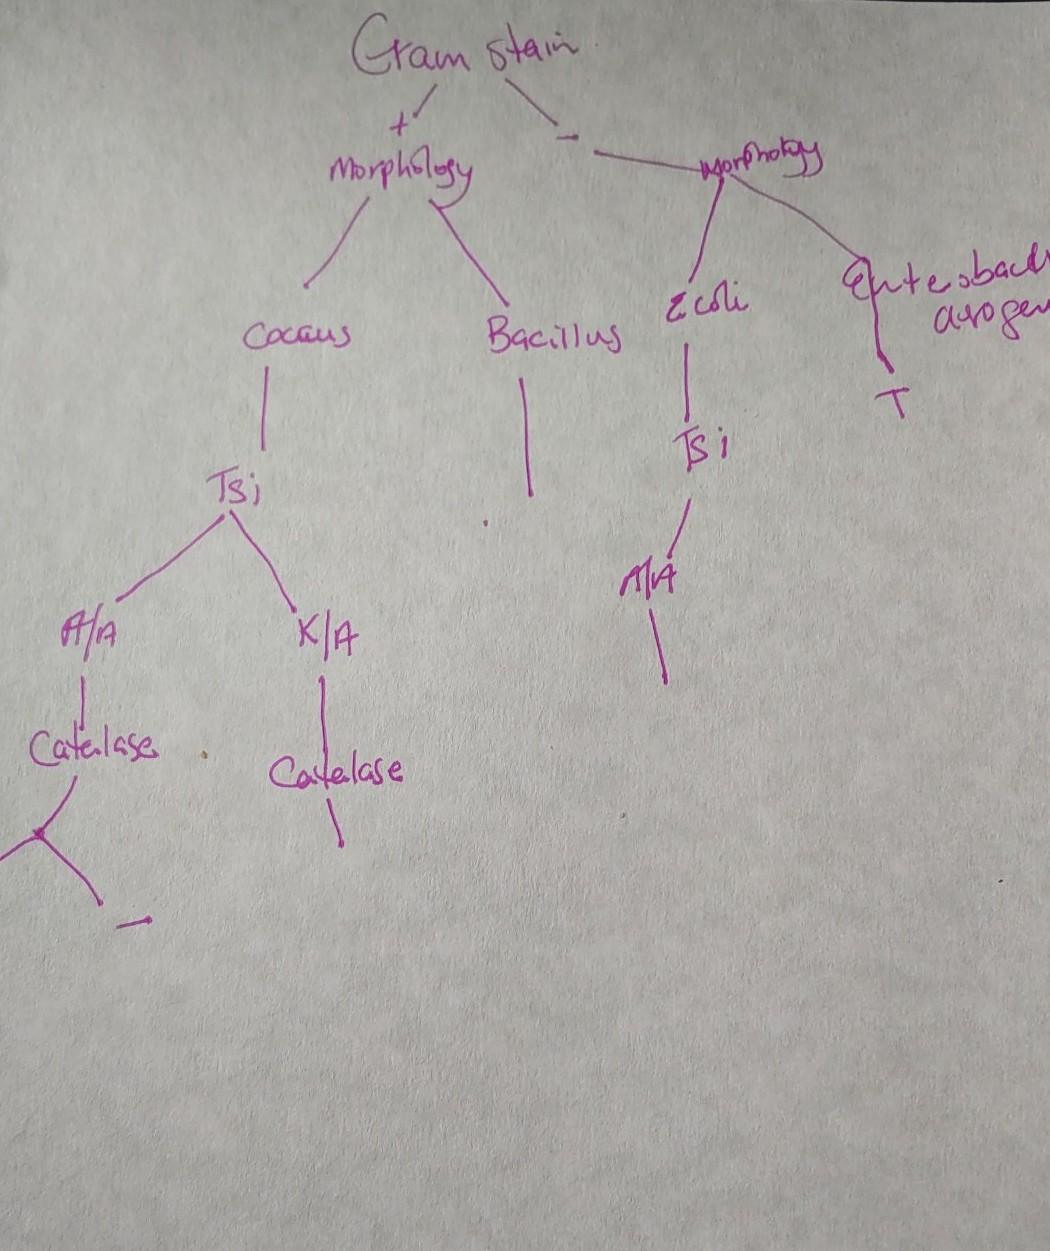 Gram stain
+ -
Morphology Morphology
Coccus Bacillus Ecoli Enterobact
arogen
T
Tsi Tsi
A/A
A/A K/A
Catalase
Catalase
-